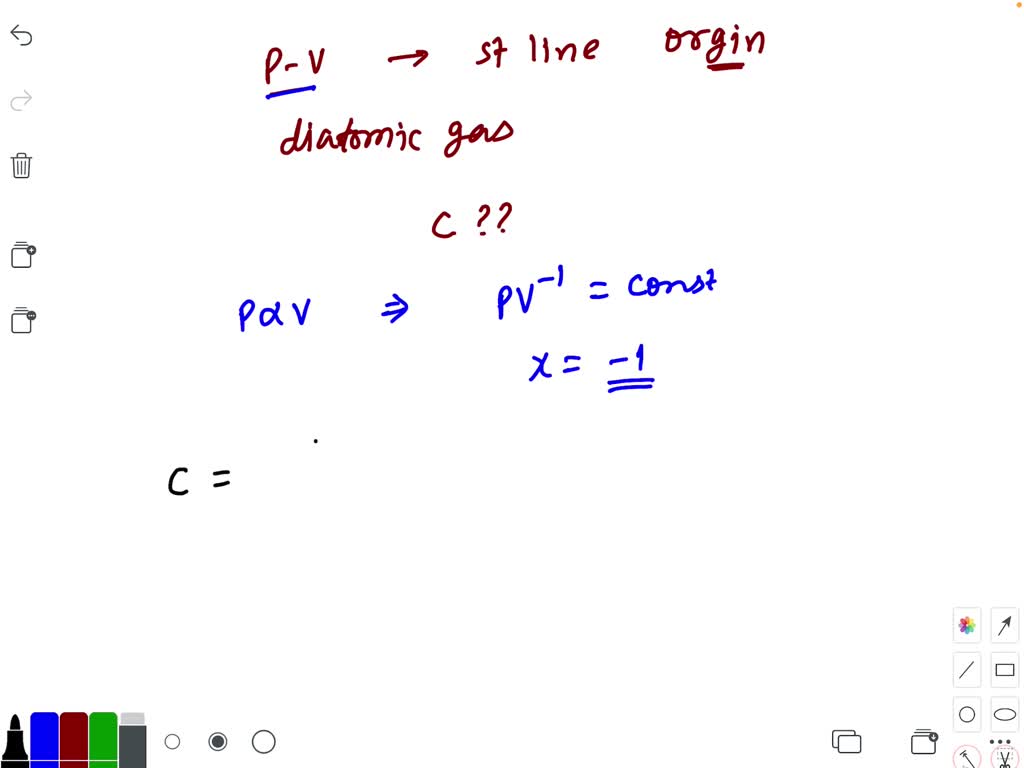 P-V → st line orgin
diatomic gas
C ??
P∝V ⇒ PV⁻¹ = const
x = -1
C =